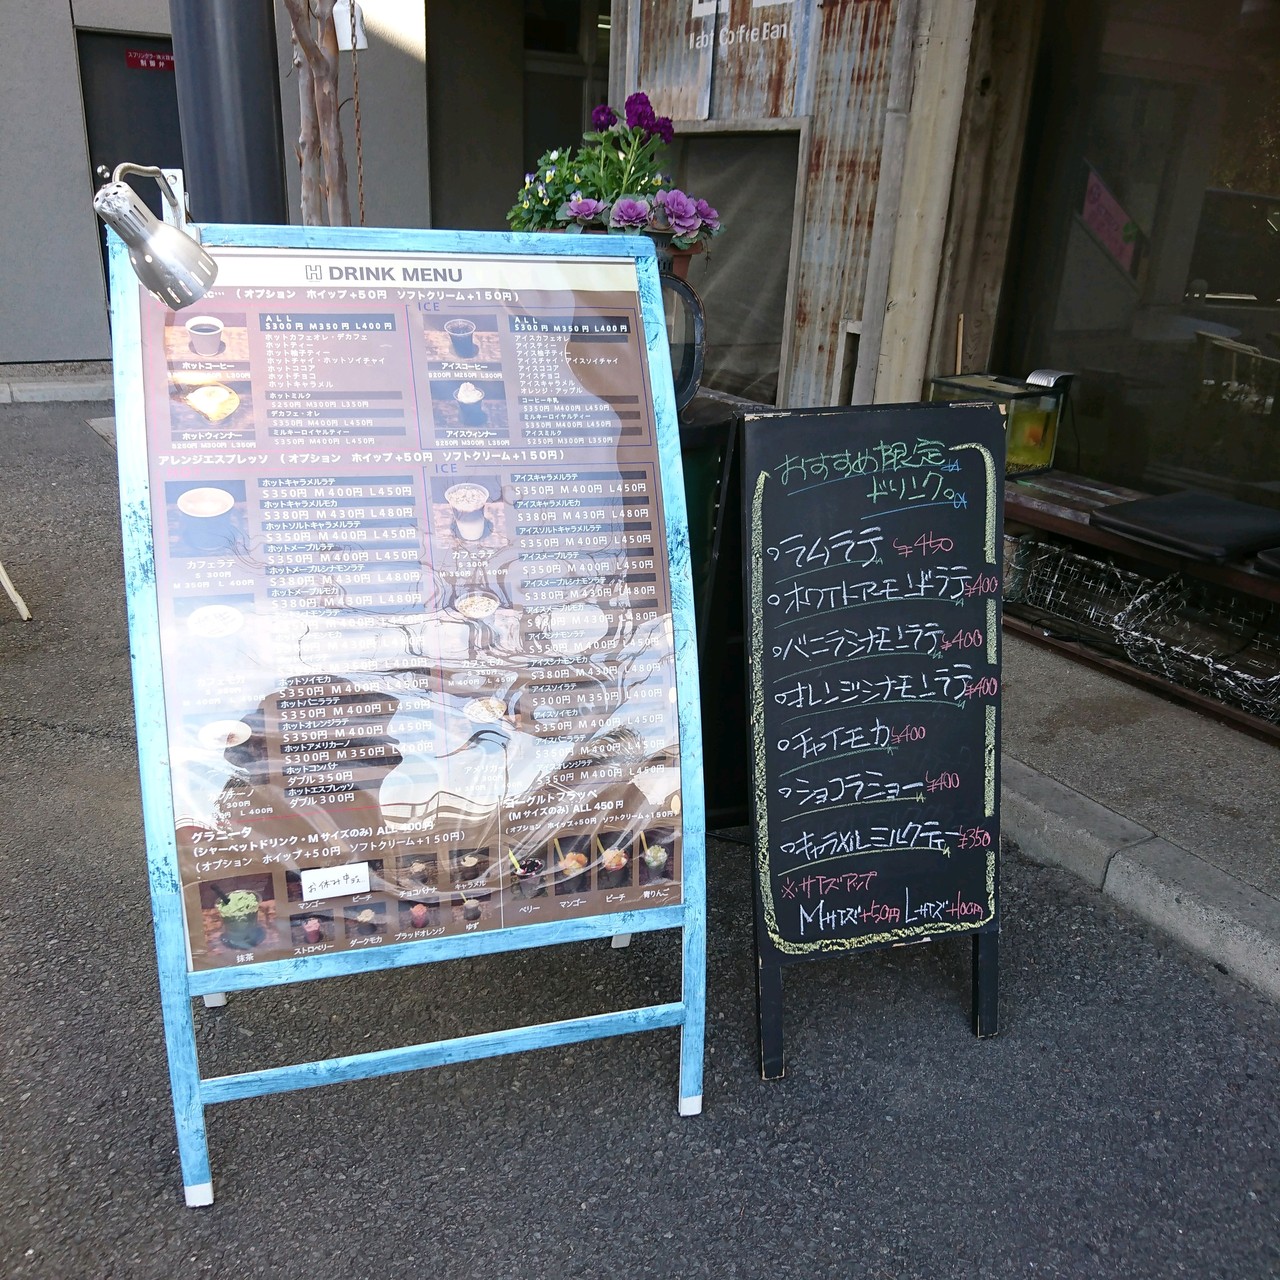 スプリンクラー
制御弁
Coffee
DRINK MENU
(オプション ホイップ+50円 ソフトクリーム+150円)
ALL
S300円 M350円 L400円
ホットカフェオレ・デカフェ
ホットティー
ホット柚子ティー
ホットチャイ・ホットソイチャイ
ホットココア
ホットチョコ
ホットキャラメル
ホットミルク
S250円 M300円 L350円
デカフェ・オレ
S350円 M400円 L450円
ミルキーロイヤルティー
S350円 M400円 L450円
ホットコーヒー
ホットウィンナー
ICE
ALL
S300円 M350円 L400円
アイスカフェオレ
アイスティー
アイス柚子ティー
アイスチャイ・アイスソイチャイ
アイスココア
アイスチョコ
アイスキャラメル
オレンジ・アップル
コーヒー牛乳
S350円 M400円 L450円
ミルキーロイヤルティー
S350円 M400円 L450円
アイスミルク
S250円 M300円 L350円
アイスコーヒー
アイスウィンナー
アレンジエスプレッソ (オプション ホイップ+50円 ソフトクリーム+150円)
ホットキャラメルラテ
S350円 M400円 L450円
ホットキャラメルモカ
S380円 M430円 L480円
ホットソルトキャラメルラテ
S350円 M400円 L450円
ホットメープルラテ
S350円 M400円 L450円
ホットメープルシナモンラテ
S380円 M430円 L480円
ホットメープルモカ
S380円 M430円 L480円
ホットソイモカ
S350円 M400円 L450円
ホットバニララテ
S350円 M400円 L450円
ホットオレンジラテ
S350円 M400円 L450円
ホットアメリカーノ
S300円 M350円 L400円
ホットコンパナ
ダブル350円
ホットエスプレッソ
ダブル300円
カフェラテ
S 300円
M 350円 L 400円
ICE
アイスキャラメルラテ
S350円 M400円 L450円
アイスキャラメルモカ
S380円 M430円 L480円
アイスソルトキャラメルラテ
S350円 M400円 L450円
アイスメープルラテ
S350円 M400円 L450円
アイスメープルシナモンラテ
S380円 M430円 L480円
アイスメープルモカ
S380円 M430円 L480円
アイスシナモンラテ
S350円 M400円 L450円
アイスシナモンモカ
S380円 M430円 L480円
アイスソイラテ
S300円 M350円 L400円
アイスソイモカ
S350円 M400円 L450円
アイスバニララテ
S350円 M400円 L450円
アイスオレンジラテ
S350円 M400円 L450円
カフェラテ
S 300円
M 350円 L 400円
カフェモカ
グラニータ
(シャーベットドリンク・Mサイズのみ) ALL 400円
(オプション ホイップ+50円 ソフトクリーム+150円)
お休み中
マンゴー
ピーチ
チョコバナナ
キャラメル
抹茶
ストロベリー
ダークモカ
ブラッドオレンジ
ゆず
ヨーグルトフラッペ
(Mサイズのみ) ALL 450円
(オプション ホイップ+50円 ソフトクリーム+150円)
ベリー
マンゴー
ピーチ
青りんご
おすすめ限定
ドリンク。
ラムラテ ¥450
ホワイトアーモンドラテ ¥400
バニラシナモンラテ ¥400
オレンジシナモンラテ ¥400
チャイモカ ¥400
ショコラミョー ¥400
キャラメルミルクティー ¥350
※サイズアップ
Mサイズ+50円 Lサイズ+100円